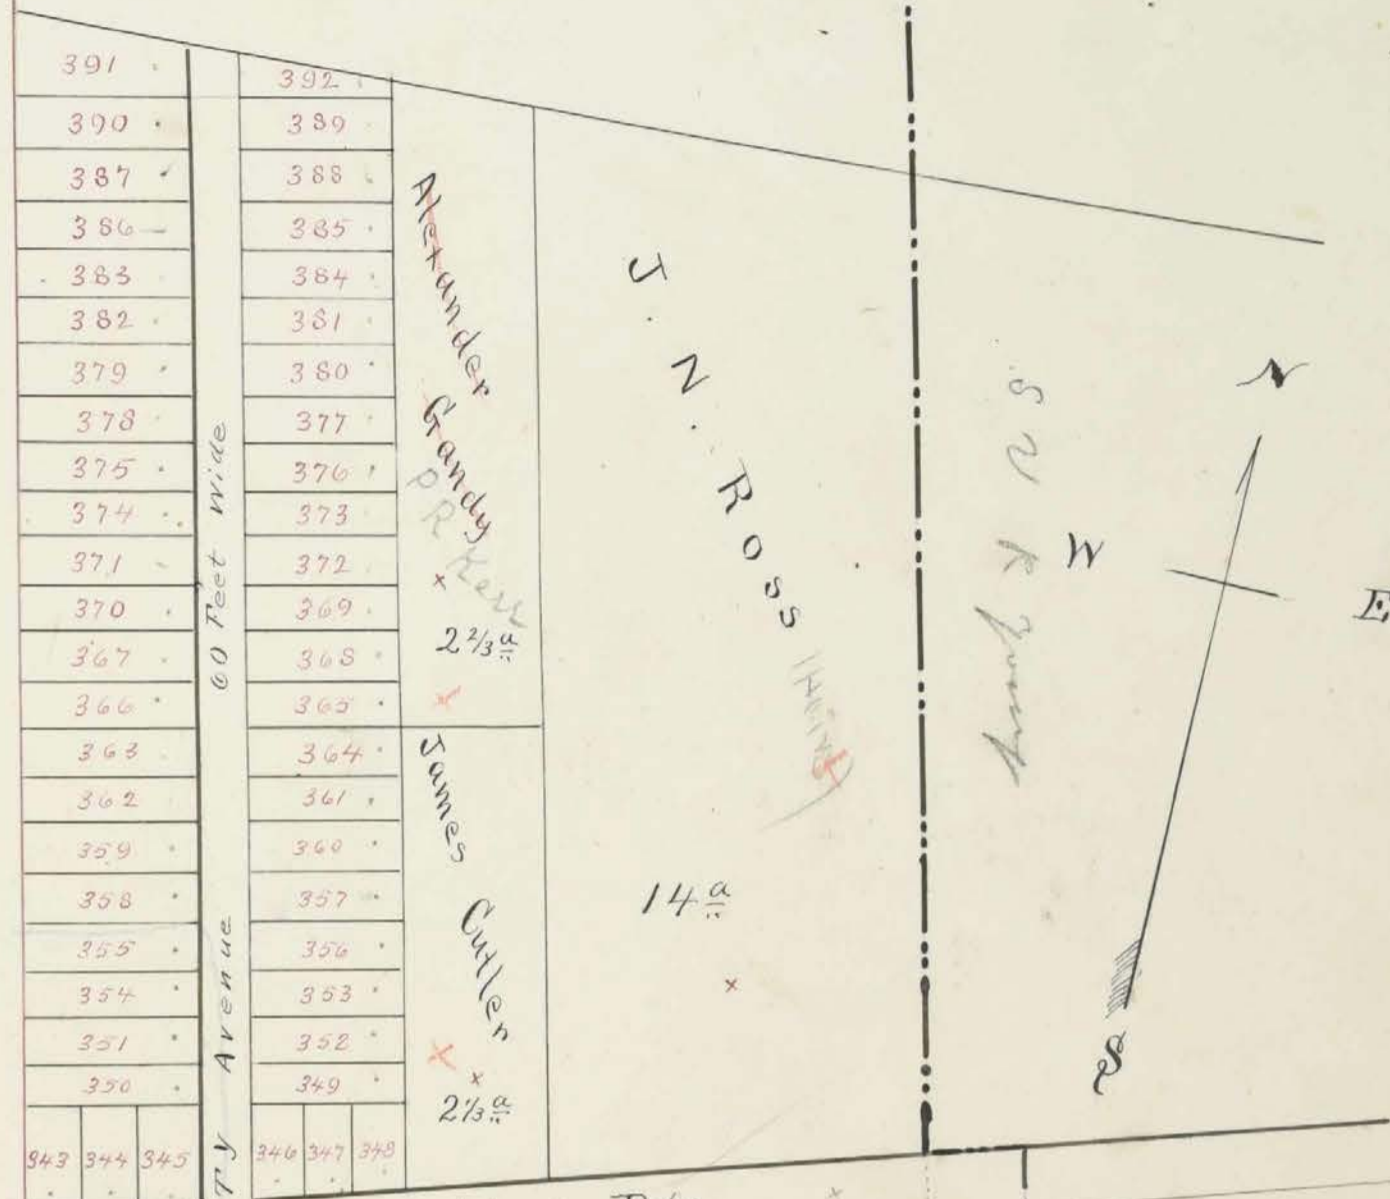 391
390
387
386
383
382
379
378
375
374
371
370
367
366
363
362
359
358
355
354
351
350
343 344 345
TY Avenue 60 Feet Wide
392
389
388
385
384
381
380
377
376
373
372
369
368
365
364
361
360
357
356
353
352
349
346 347 348
Alexander Gandy
P R Kerr
x
2 2/3 a
x
James Cutler
x
x
2 1/3 a
J. N. Ross
14 a
x
N
W
E
S